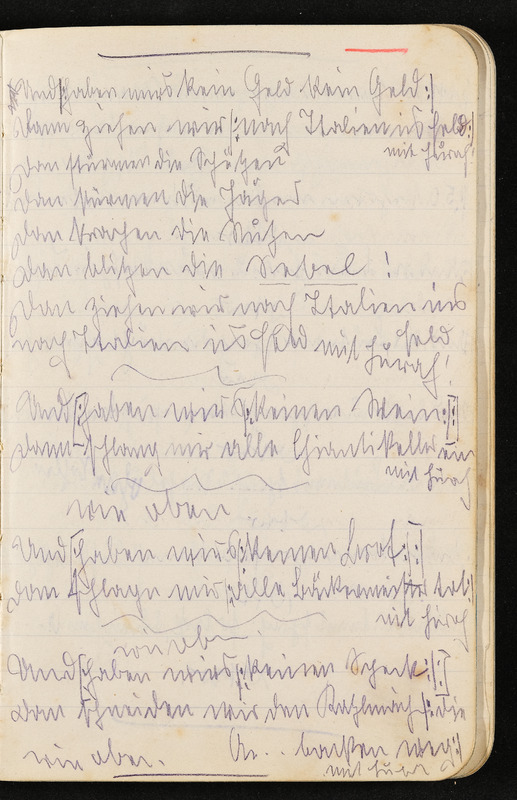 Und haben wirs kein Geld kein Geld :|
Dann ziehen wir |: nach Italien ins Feld :|
mit Hurah!
Dan stürmen die Schützen
Dan stürmen die Jäger
Dan krachen die Stutzen
Dan blitzen die Sebel!
Dan ziehen wir nach Italien ins
nach Italien ins Feld mit Hurah!
Feld
Und |: haben wir |: keinen Wein :|:|
dann schlang mir alle Chiantikeller ein
mit Hurah
wie oben
Und |: haben wirs |: keinen Brot :|:|
Dan schlagn mir |: alle Bäckermeister tot :|
mit Hurah
wie oben.
Und |: haben wirs |: keinen Speck :|:|
Dan schneiden wir den |: die
backen weg :|
wie oben.
mit Hurra